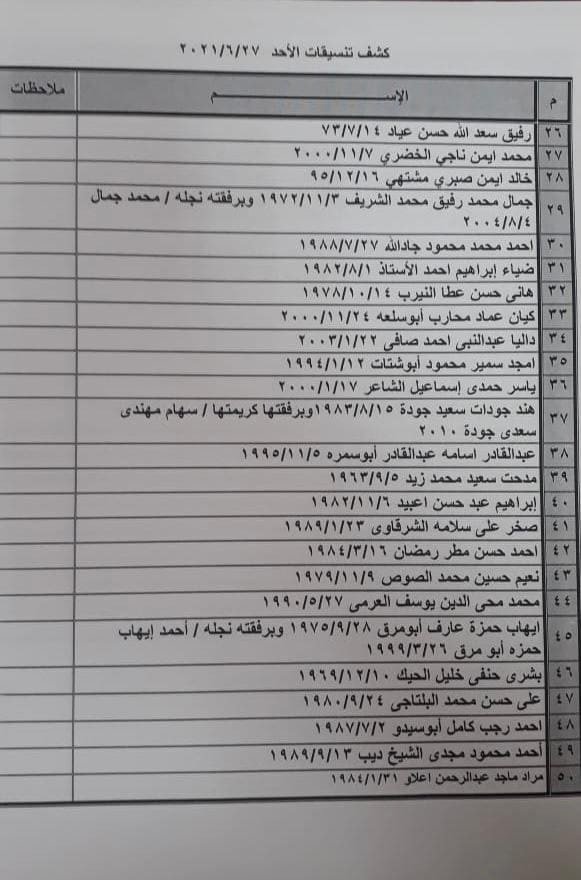 كشف تنسيقات الأحد ٢٠٢١/٦/٢٧
م الإســـــــم ملاحظات
٢٦ رفيق سعد الله حسن عياد ٧٣/٧/١٤
٢٧ محمد ايمن ناجي الخضري ٢٠٠٠/١١/٧
٢٨ خالد ايمن صبري مشتهي ٩٥/١٢/١٦
٢٩ جمال محمد رفيق محمد الشريف ١٩٧٢/١١/٣ وبرفقته نجله / محمد جمال
٢٠٠٤/٨/٤
٣٠ احمد محمد محمود جادالله ١٩٨٨/٧/٢٧
٣١ ضياء إبراهيم احمد الأستاذ ١٩٨٢/٨/١
٣٢ هانى حسن عطا النيرب ١٩٧٨/١٠/١٤
٣٣ كيان عماد محارب أبوسلعه ٢٠٠٠/١١/٢٤
٣٤ داليا عبدالنبى احمد صافى ٢٠٠٣/١/٢٢
٣٥ امجد سمير محمود أبوشتات ١٩٩٤/١/١٢
٣٦ ياسر حمدى إسماعيل الشاعر ٢٠٠٠/١/١٧
٣٧ هند جودات سعيد جودة ١٩٨٣/٨/١٥وبرفقتها كريمتها / سهام مهندى
سعدى جودة ٢٠١٠
٣٨ عبدالقادر اسامه عبدالقادر أبوسمره ١٩٩٥/١١/٥
٣٩ مدحت سعيد محمد زيد ١٩٦٣/٩/٥
٤٠ إبراهيم عبد حسن اعبيد ١٩٨٢/١١/٦
٤١ صخر على سلامه الشرقاوى ١٩٨٩/١/٢٣
٤٢ احمد حسن مطر رمضان ١٩٨٤/٣/١٦
٤٣ نعيم حسين محمد الصوص ١٩٧٩/١١/٩
٤٤ محمد محى الدين يوسف العرمى ١٩٩٠/٥/٢٧
٤٥ ايهاب حمزة عارف أبومرق ١٩٧٥/٩/٢٨ وبرفقته نجله / أحمد إيهاب
حمزه أبو مرق ١٩٩٩/٣/٢٦
٤٦ بشرى حنفى خليل الحيك ١٩٦٩/١٢/١٠
٤٧ على حسن محمد البلتاجى ١٩٨٠/٩/٢٤
٤٨ احمد رجب كامل أبوسيدو ١٩٨٧/٧/٢
٤٩ أحمد محمود مجدى الشيخ ديب ١٩٨٩/٩/١٣
٥٠ مراد ماجد عبدالرحمن اعلاو ١٩٨٤/١/٣١